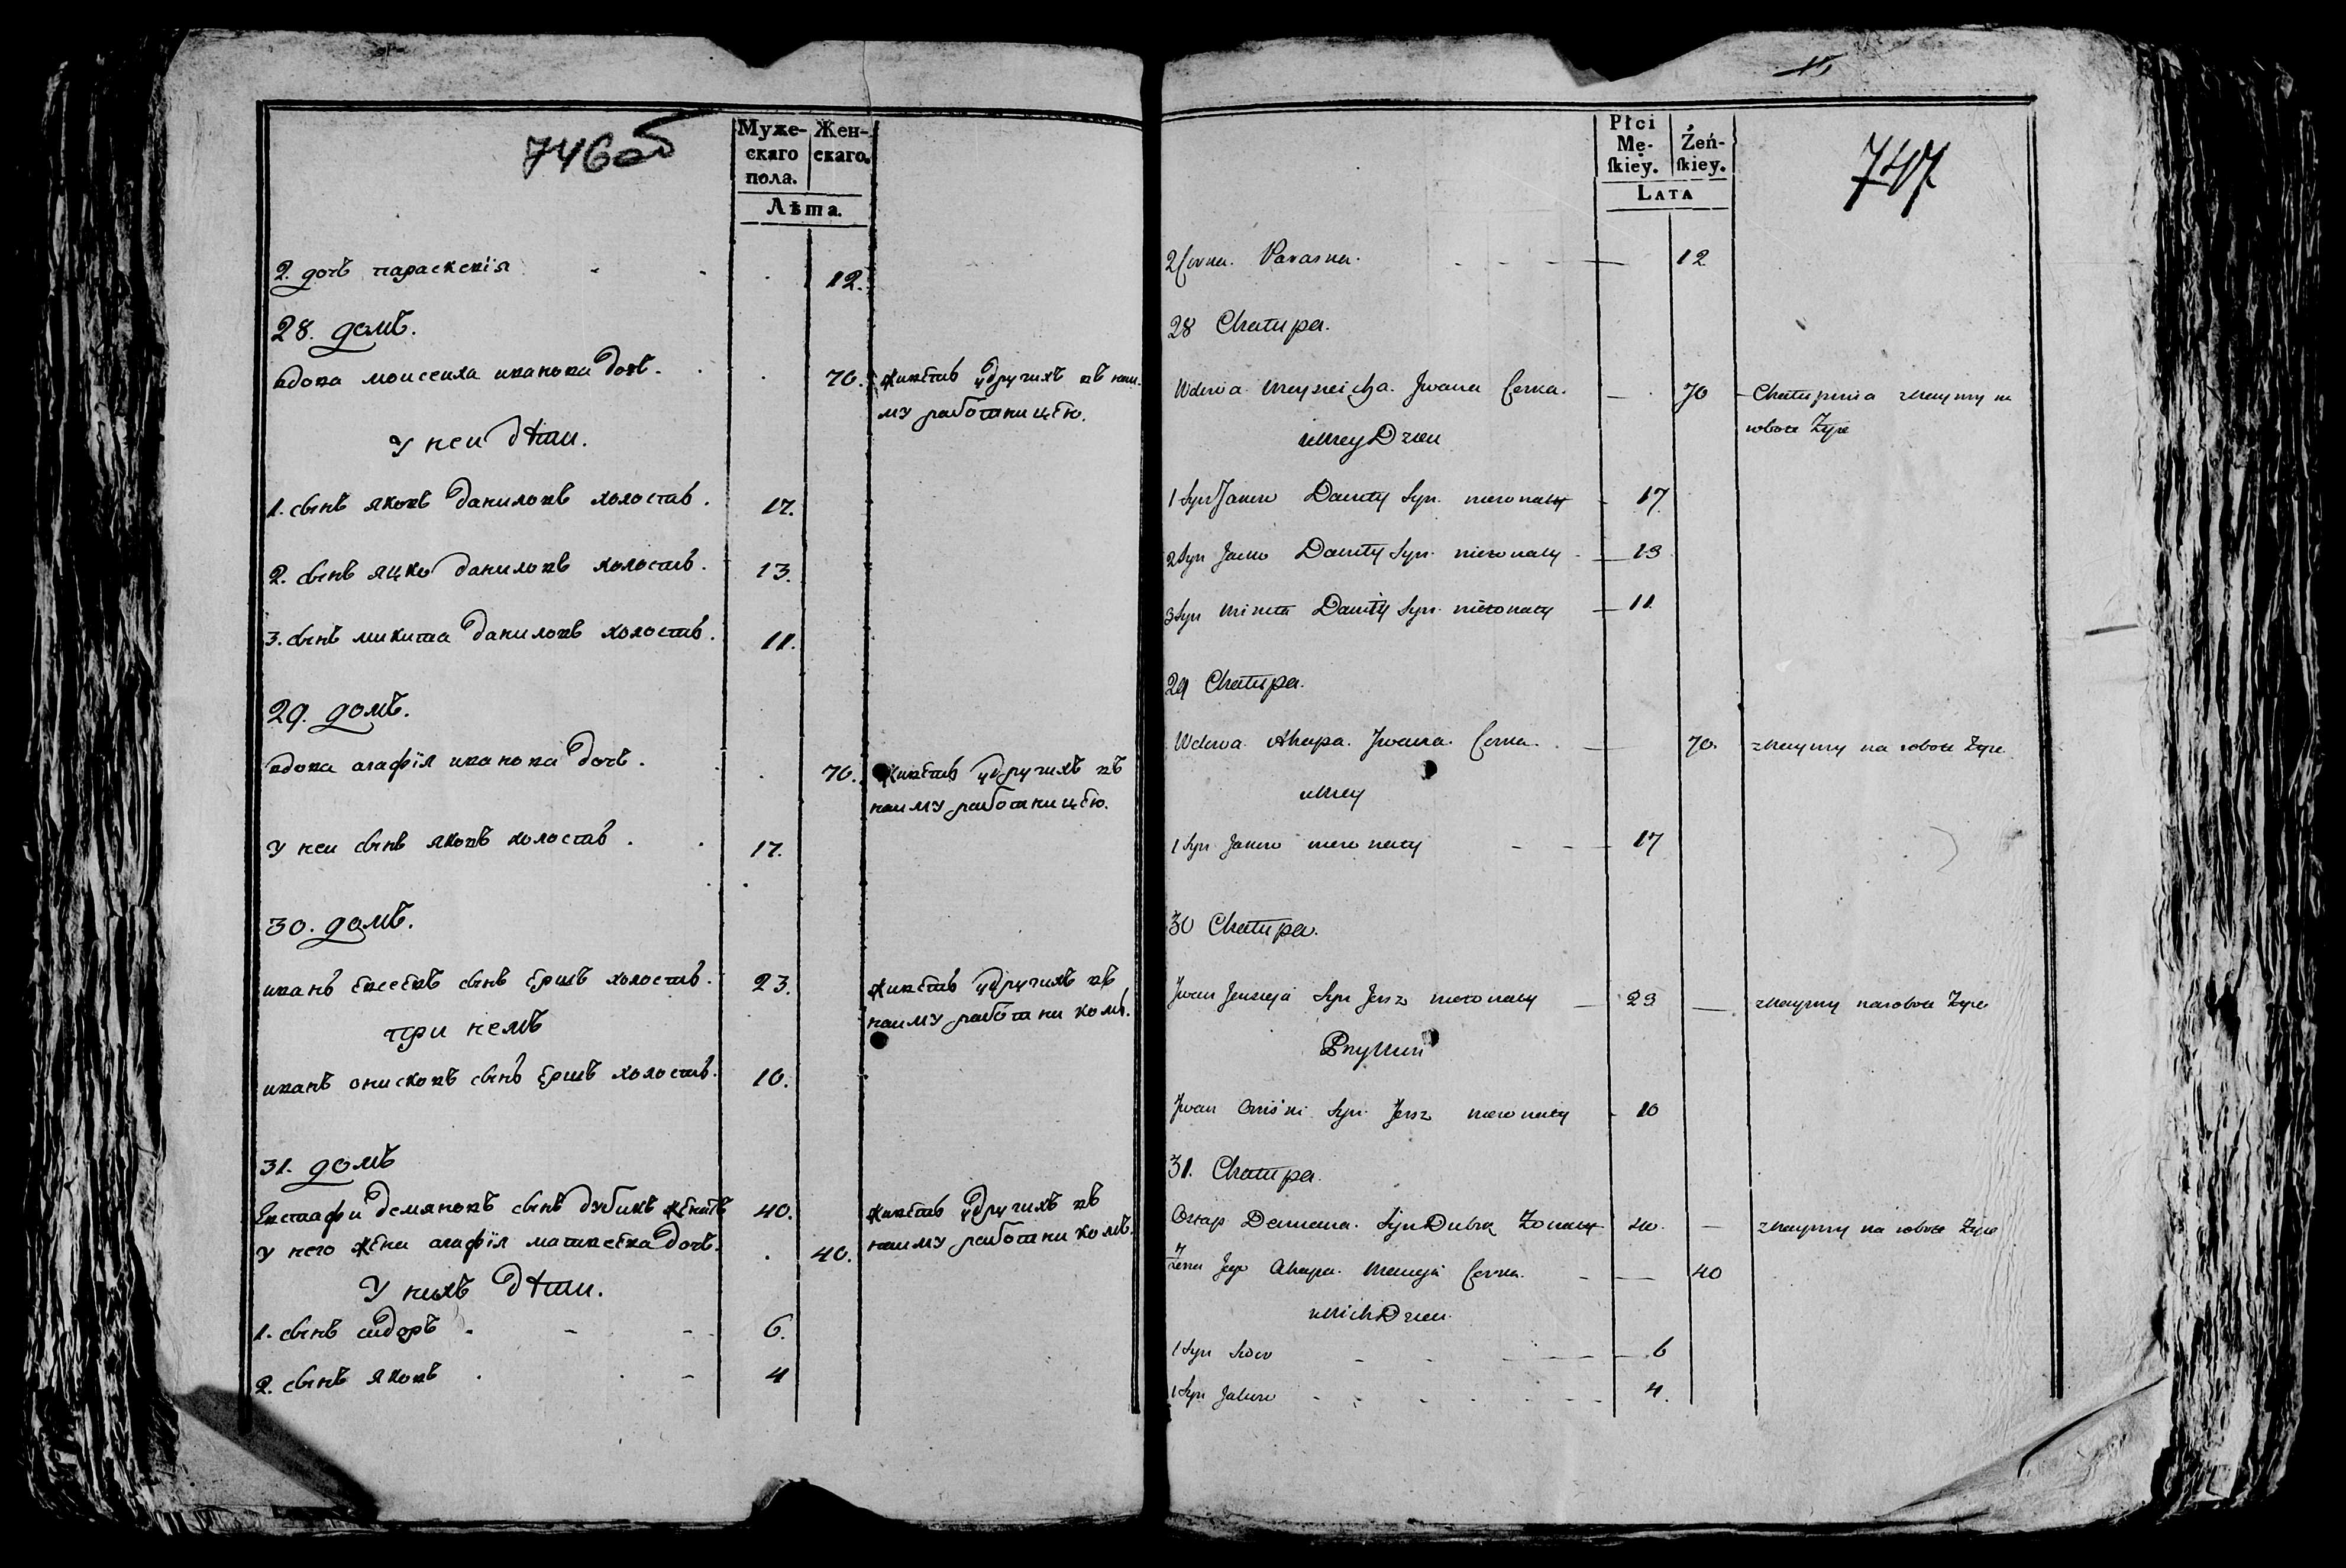 746об
Муже- Жен-
скаго скаго.
пола.
Лѣта.
2. дочъ параскевїя 12.
28. домъ.
вдова моисеиха иванова дочъ. 70. живетъ удругихъ въ наи-
му работницею.
У неи дѣти.
1. сынъ яковъ даниловъ холостъ. 17.
2. сынъ яцко даниловъ холостъ. 13.
3. сынъ микита даниловъ холостъ. 11.
29. домъ.
вдова агафїя иванова дочъ. 70. живетъ удругихъ въ
наиму работницею.
У неи сынъ яковъ холостъ. 17.
30. домъ.
иванъ евсеевъ сынъ ершъ холостъ. 23. живетъ удругихъ въ
наиму работникомъ.
при немъ
иванъ онисковъ сынъ ершъ холостъ. 10.
31. домъ
Евстафи демяновъ сынъ дубикъ женатъ 40. живетъ удругихъ въ
У него жена агафїя матвеева дочъ. 40. наиму работникомъ.
У нихъ дѣти.
1. сынъ сидоръ. 6.
2. сынъ яковъ. 4
Płci
Mę- Żeń-
ſkiey. ſkiey.
LATA
747
2 Corka. Paraska. 12
28 Chałupa.
Wdowa Moyseicha Jwana Corka. 70 Chałupnica znaymy na
robocie Żyie
uniey Dzieci
1 Syn Jakow Daniły Syn. niezonaty 17
2 Syn Jacko Daniły Syn. niezonaty 13
3 Syn Mikita Daniły Syn. niezonaty 11.
29 Chałupa.
Wdowa Ahapa. Jwana. Corka. 70. znaymy na robocie Żyie
uniey
1 Syn Jakow niezonaty 17
30 Chałupa.
Jwan Jewsieja Syn Jersz niezonaty 23 znaymy narobocie Żyie
Przynim
Jwan Oniśki Syn. Jersz niezonaty 10
31. Chałupa.
Ostap Demiana. Syn Dubik Żonaty 40. znaymy na robocie Żyie
Żona Jego Ahapa. Macieja Corka. 40
unich Dzieci.
1 Syn Sidor 6
1 Syn Jakow 4.